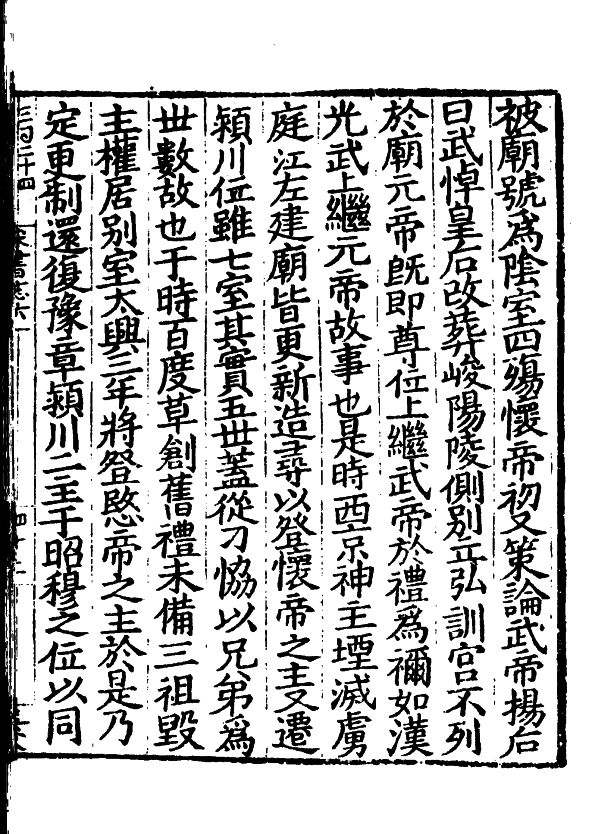 被廟號爲陰室四殤懷帝初又策論武帝揚后
曰武悼皇后改葬峻陽陵側別立弘訓宫不列
於廟元帝旣即尊位上繼武帝於禮爲禰如漢
光武上繼元帝故事也是時西京神主堙滅虜
庭江左建廟皆更新造尋以登懷帝之主又遷
潁川位雖七室其實五世蓋從刁協以兄弟爲
世數故也于時百度草創舊禮未備三祖毀
主權居別室太興三年將登愍帝之主於是乃
定更制還復豫章潁川二主于昭穆之位以同
宋書志六